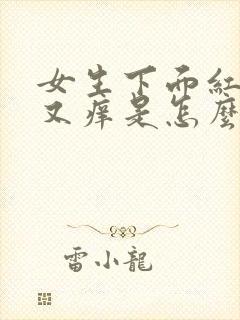 女生下面紅
又痒是怎麼
雷小龍